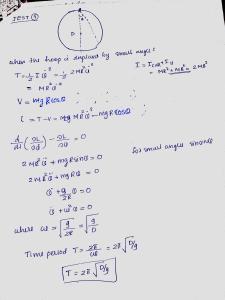 JEST ①
D
when the hoop is displaced by small angle
T = 1/2 I θ̇² = 1/2 2MR² θ̇²
= MR² θ̇²
I = Icm + Id
= MR² + MR² = 2MR²
V = -mgRcosθ
L = T - V =
d/dt (∂L/∂θ̇) - ∂L/∂θ = 0
2MR² θ̈ + mgRsinθ = 0
for small angles sinθ≈θ
2MR² θ̈ + mgRθ = 0
θ̈ + g/2R θ = 0
θ̈ + ω²θ = 0
where ω = √g/2R = √g/D
Time period T = 2π/ω = 2π √D/g
T = 2π √D/g